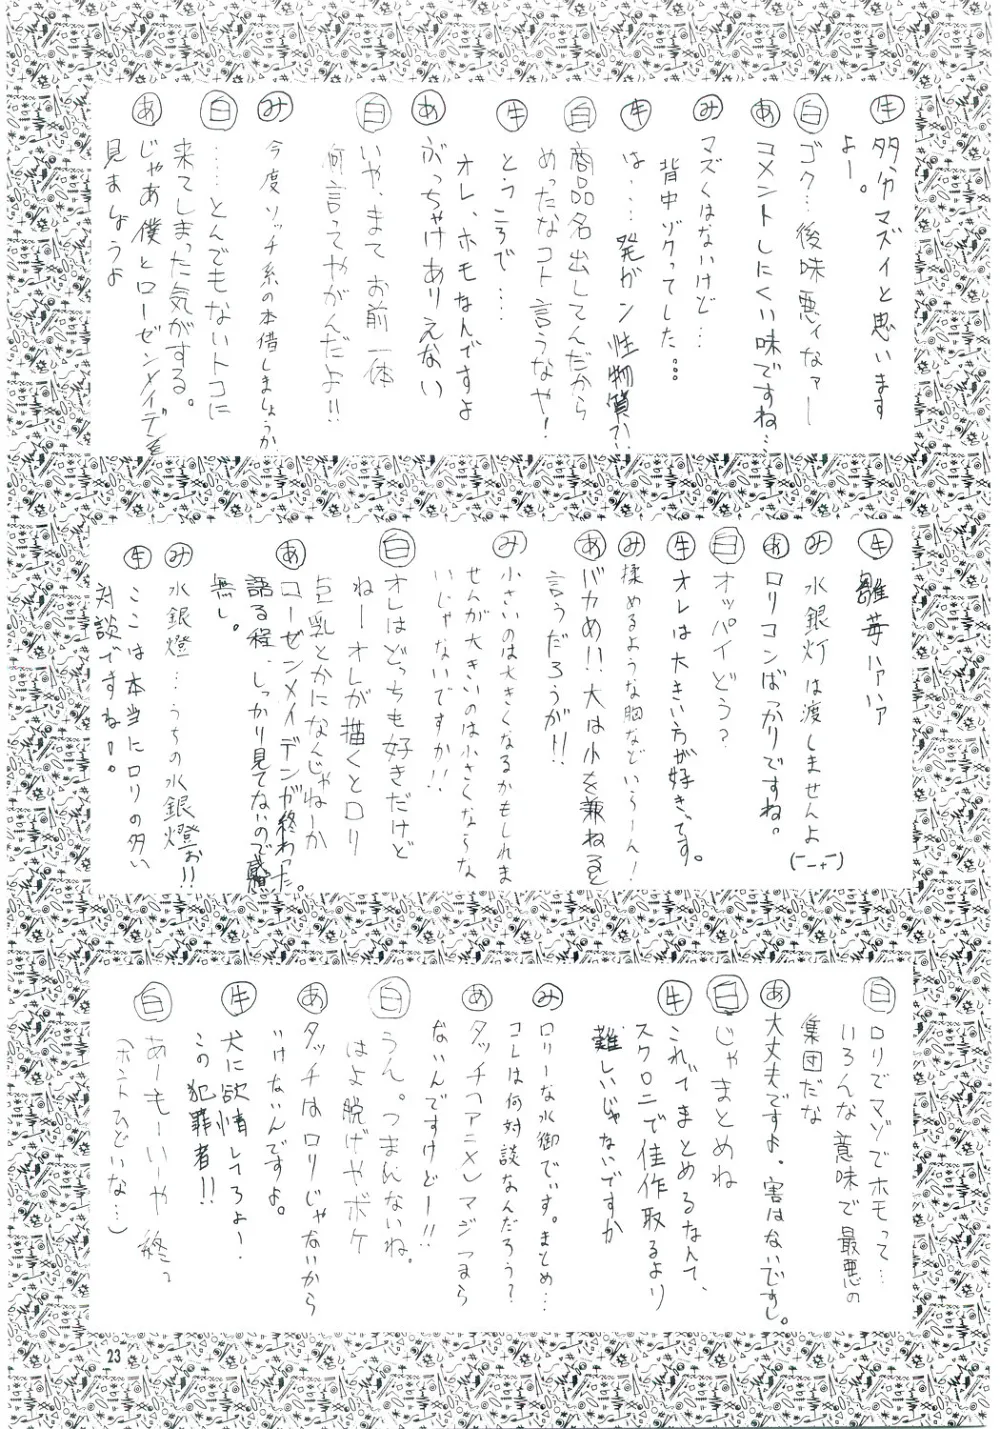 牛 多分マズイと思います
よー。
白 ゴク…後味悪ィなァー
あ コメントしにくい味ですね…
み マズくはないけど…
背中ゾクってした…
牛 は…発ガン性物質か!
白 商品名出してんだから
めったなコト言うなや!
牛 ところで…
オレ、ホモなんですよ
あ ぶっちゃけありえない
白 いや、まてお前一体
何言ってやがんだよ!!
み 今度ソッチ系の本借しましょうか
白 ……とんでもないトコに
来てしまった気がする。
あ じゃあ僕とローゼンメイデン
見ましょうよ
牛 雛苺ハァハァ
み 水銀灯は渡しませんよ
あ ロリコンばっかりですね。
白 オッパイどう?
牛 オレは大きい方が好きです。
み 揉めるような胸などいらーん!
あ バカめ!!大は小を兼ねると
言うだろうが!!
み 小さいのは大きくなるかもしれま
せんが大きいのは小さくなら〜な
いじゃないですか!!
白 オレはどっちも好きだけど
ねーオレが描くとロリ
巨乳とかになんじゃねーか
あ ローゼンメイデンが終わった。
語る程、しっかり見てないので感想
無し。
み 水銀燈…うちの水銀燈ぉ!!
牛 ここは本当にロリの多い
対談ですね!。
白 ロリでマゾでホモって…
いろんな意味で最悪の
集団だな
あ 大丈夫ですよ。害はないですし。
白 じゃまとめね
牛 これでまとめるなんて、
スクロニで佳作取るより
難しいじゃないですか
み ロリーな水御でぃす。まとめ…
コレは何対談なんだろう?
あ タッチ(アニメ)マジつまら
ないんですけどー!!
白 うん。つまんないね。
はよ脱げやボケ
あ タッチはロリじゃないから
いけないんですよ。
牛 犬に欲情してろよー!
この犯罪者!!
白 あーもーいーや 終っ
(ホントひどいな…)
23